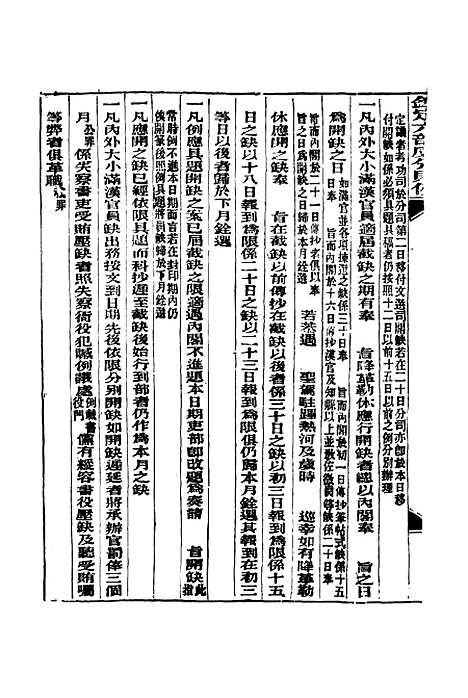 欽定六部處分則例
定議者考功司於分司第二日移付文選司開缺若在二十日分司亦卽於本日移
付開缺如係必須具題具稿者仍按照十二日以前十五日以前之例分別辦理
一凡內外大小滿漢官員適屆截缺之期有奉　旨降革勒休應行開缺者總以內閣奉　旨之日
為開缺日期
如滿官並各項揀選之缺係三十日奉　旨而內閣於初一日傳抄筆帖式缺係十五
日奉　旨而內閣於十六日傳抄漢官及知縣以上並教佐微員等缺係二十日奉
旨而內閣於二十一日傳抄者俱以奉
旨之日為開缺日歸於本月銓選
若恭遇　聖駕駐蹕熱河及歲時　巡幸如有降革勒
休應開之缺奉　旨在截缺以前傳抄在截缺以後者係三十日之缺以初三日報到為限係十五
日之缺以十八日報到為限係二十日之缺以二十三日報到為限俱仍歸本月銓選其報到在初三
等日以後者歸於下月銓選
一凡例應具題開缺之案已屆截缺之限適遇內閣不進題本日期吏部卽改題為奏請　旨開缺
此指
常時例不進本日期而言若在封印期內仍
俟開篆後照例具題開缺歸於下月銓選
一凡應開之缺已經依限具題而科抄遲至截缺後始行到部者仍作為本月之缺
一凡內外大小滿漢官員缺出務按文到日期先後依限分別開缺如開缺遲延者將承辦官罰俸三個
月公罪係失察書吏受賄壓缺者照失察衙役犯贓例議處例載書役門儻有縱容書役壓缺及聽受賄囑
等弊者俱革職私罪